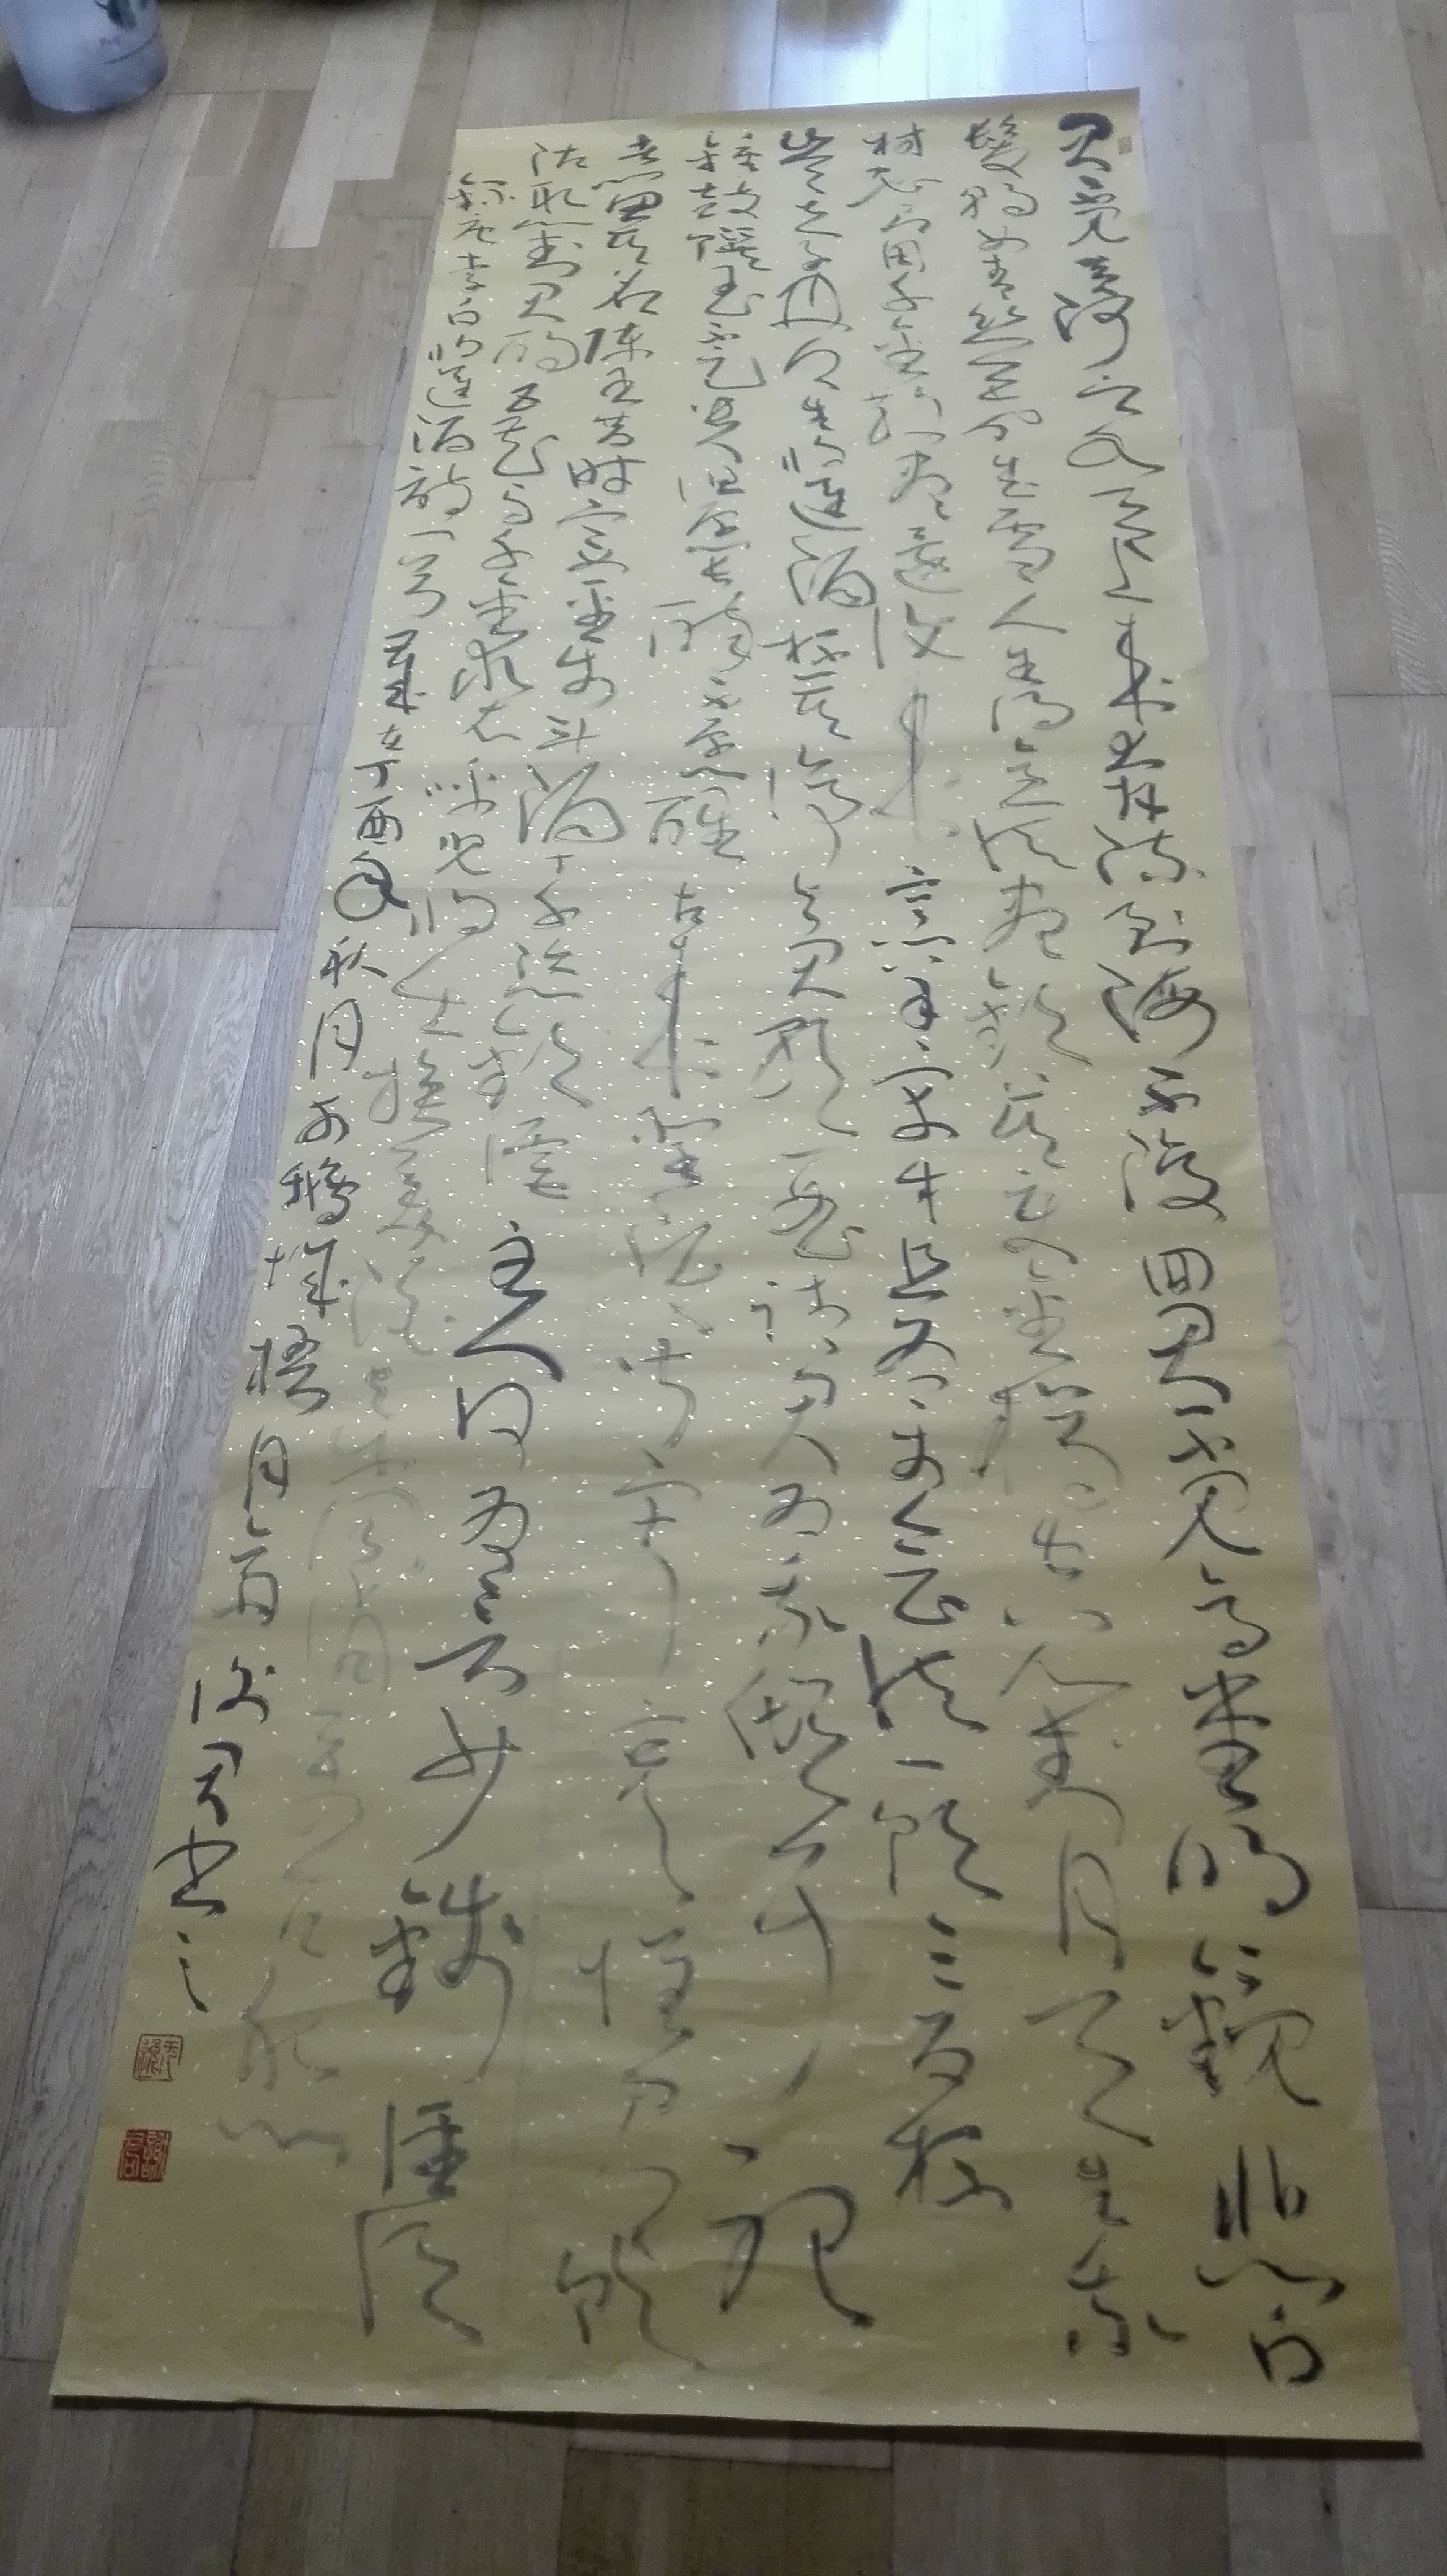 君不見黄河之水天上来奔流到海不復回君不見高堂明鏡悲白
髮朝如青絲暮成雪人生得意須盡歡莫使金樽空對月天生我
材必有用千金散盡還復来烹羊宰牛且為樂會須一飲三百杯
岑夫子丹丘生將進酒杯莫停與君歌一曲請君為我傾耳聽
鐘鼓饌玉不足貴但願長醉不願醒古来聖賢皆寂寞惟有飲
者留其名陳王昔時宴平樂斗酒十千恣歡謔主人何為言少錢徑須
沽取對君酌五花馬千金裘呼兒將出換美酒與爾同銷萬古愁
錄唐李白將進酒詩一首歲在丁酉年秋月於鵝城梧月齋謝君書之